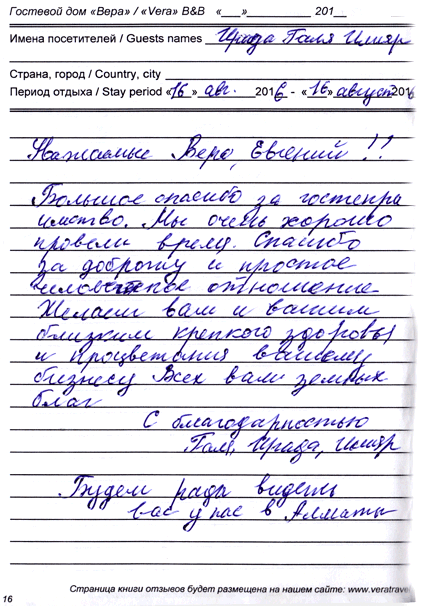 Гостевой дом «Вера» / «Vera» B&B «___»____________ 201__
Имена посетителей / Guests names Ирада Галя Илияр
Страна, город / Country, city
Период отдыха / Stay period «16» авг. 2016 - «16» август 2016
Уважаемые Вера, Евгений!!
Большое спасибо за гостепри
имство. Мы очень хорошо
провели время. Спасибо
за доброту и простое
человеческое отношение
Желаем вам и вашим
близким крепкого здоровья
и процветания вашему
бизнесу Всех вам земных
благ
С благодарностью
Галя, Ирада, Илияр
Будем рады видеть
вас у нас в Алматы
Страница книги отзывов будет размещена на нашем сайте: www.veratrave
16